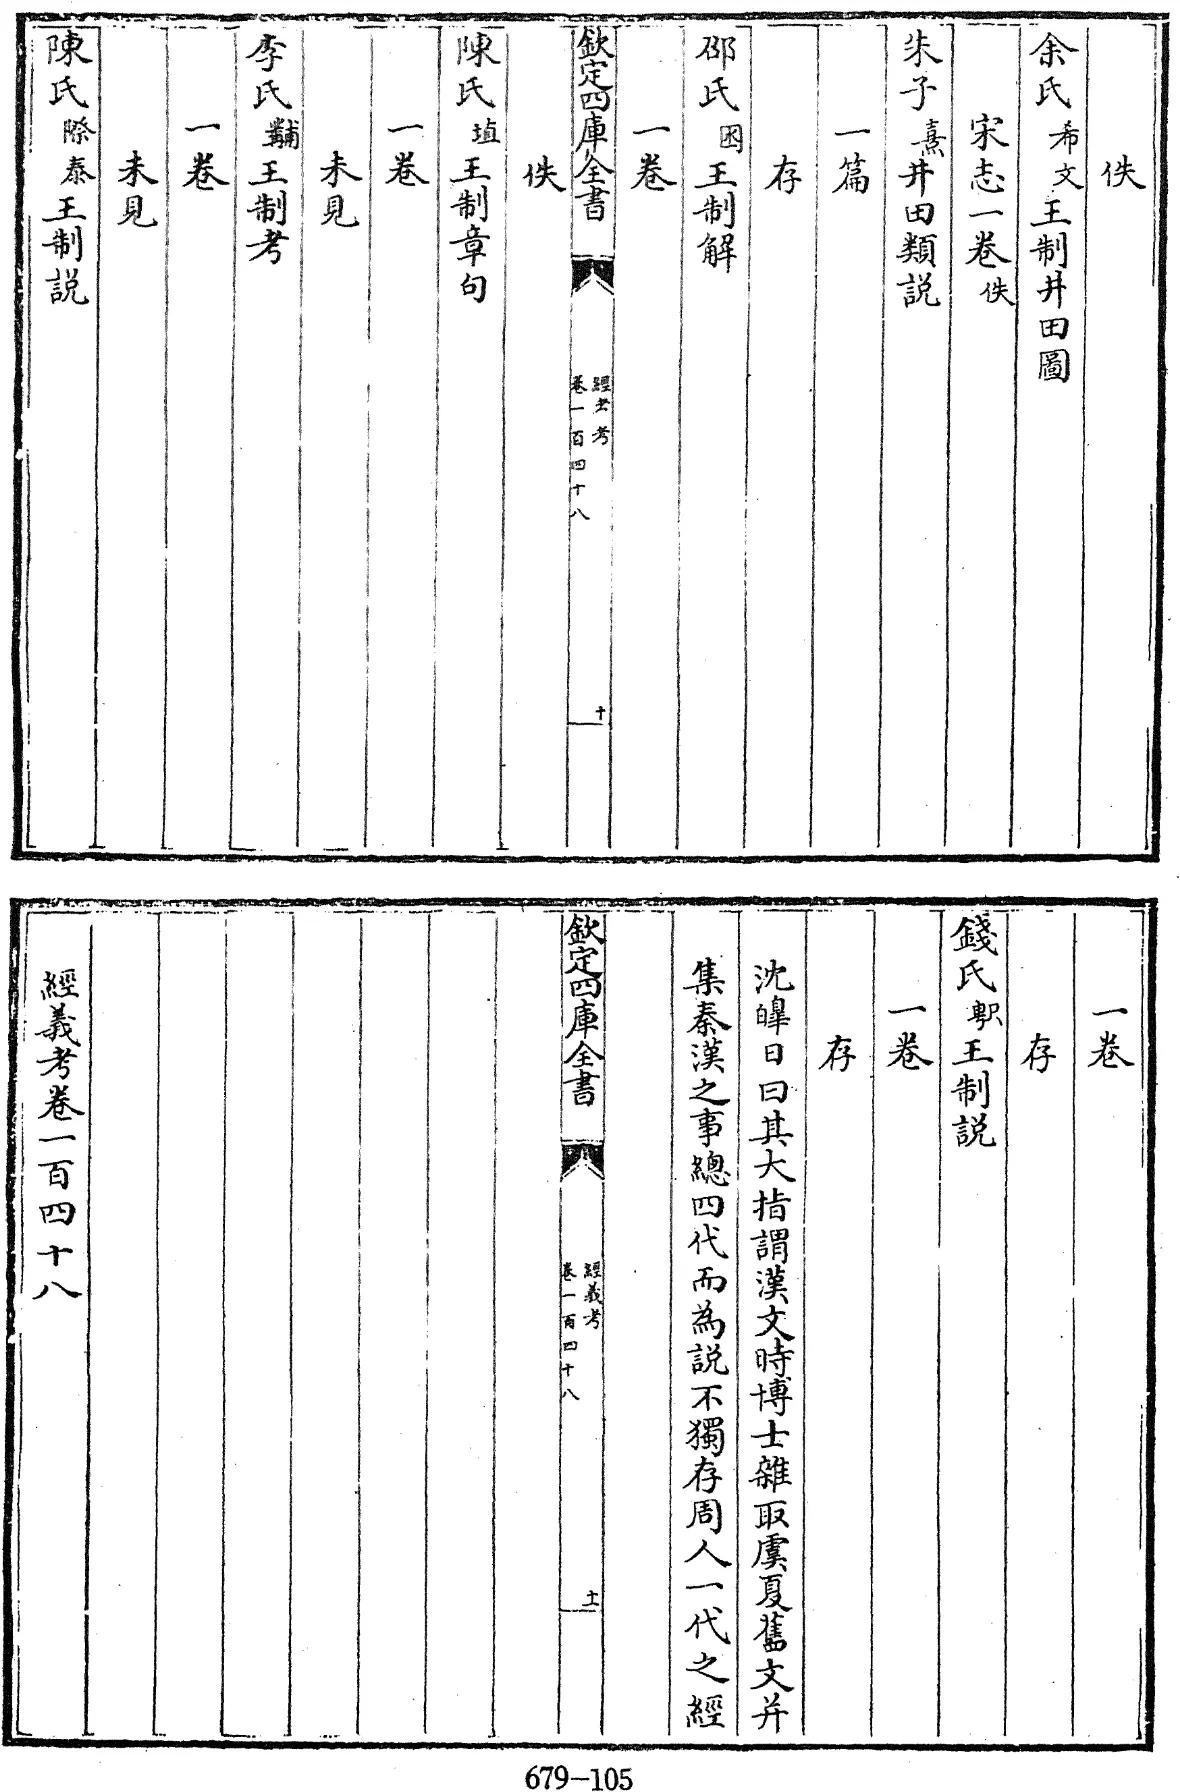 佚
余氏希文王制井田圖
宋志一卷佚
朱子熹井田類說
一篇
存
邵氏囦王制解
一卷
欽定四庫全書
經義考
卷一百四十八
十
佚
陳氏埴王制章句
一卷
未見
李氏黼王制考
一卷
未見
陳氏際泰王制說
一卷
存
錢氏王制說
一卷
存
沈皡日曰其大指謂漢文時博士雜取虞夏舊文并
集秦漢之事總四代而為說不獨存周人一代之經
欽定四庫全書
經義考
卷一百四十八
十一
經義考卷一百四十八
679-105